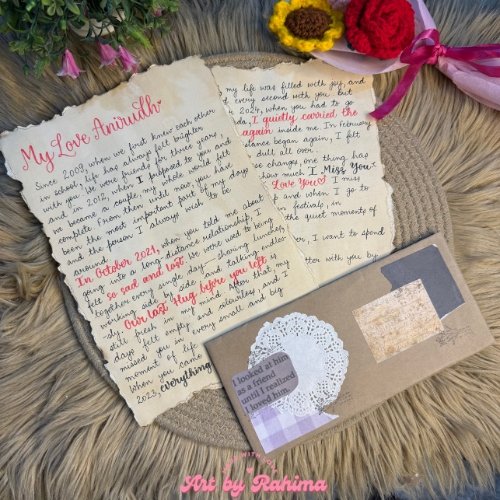 My Love Anirudh
Since 2009, when we first knew each other
in school, life has always felt brighter
with you. We were friends for three years,
and in 2012, when I proposed to you and
we became a couple, my whole world felt
complete. From then until now, you have
been the most important part of my days
and the person I always wish to be
around.
In October 2021, when you told me about
going into a long-distance relationship, I
felt so sad and lost. We were used to being
together every single day— sharing lunches,
working side by side and talking endles-
sly. Our last hug before you left is
still fresh in my mind. After that, my
days felt empty and colourless, and I
missed you in every small and big
moment of life
When you came
2023, everything
my life was filled with joy, and
every second with you but
2024, when you had to go
I quietly carried the
again inside me. In February
distance began again, I felt
dull all over.
change, one thing has
how much I Miss You
Love You I miss
and when I go to
festivals, in
the quiet moments of
I want to spend
with you by
I looked at him
as a friend
until I realized
I loved him.
Art by Rahima